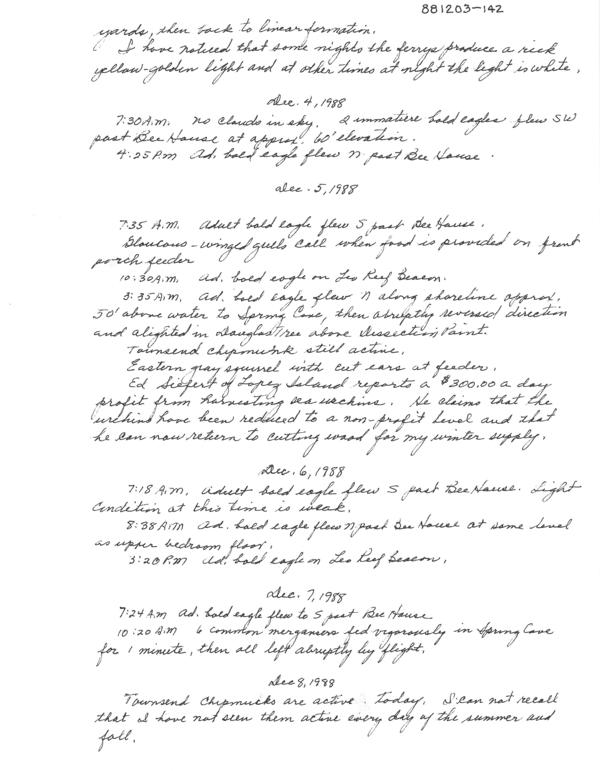 881203-142
yards, then back to linear formation.
I have noticed that some nights the ferrys produce a rich
yellow-golden light and at other times at night the light is white.
Dec. 4, 1988
7:30 A.M. No clouds in sky. 2 immature bald eagles flew SW
past Bee House at approx. 60' elevation.
4:25 P.M Ad. bald eagle flew N past Bee House.
Dec. 5, 1988
7:35 A.M. Adult bald eagle flew S past Bee House.
Glaucous-winged gulls call when food is provided on front
porch feeder
10:30 A.M. Ad. bald eagle on Leo Reef Beacon.
3:35 A.M. Ad. bald eagle flew N along shoreline approx.
50' above water to Spring Cove, then abruptly reversed direction
and alighted in Douglas Tree above Dissection Point.
Townsend chipmunk still active.
Eastern gray squirrel with cut ears at feeder.
Ed of Lopez Island reports a $300.00 a day
profit from harvesting sea urchins. He claims that the
urchins have been reduced to a non-profit level and that
he can now return to cutting wood for my winter supply.
Dec. 6, 1988
7:18 A.M. Adult bald eagle flew S past Bee House. Light
condition at this time is weak.
8:38 A.M Ad. bald eagle flew N past Bee House at same level
as upper bedroom floor.
3:20 P.M Ad. bald eagle on Leo Reef Beacon.
Dec. 7, 1988
7:24 A.M Ad. bald eagle flew to S past Bee House
10:20 A.M 6 common mergansers fed vigorously in Spring Cove
for 1 minute, then all left abruptly by flight.
Dec 8, 1988
Townsend Chipmucks are active today. I can not recall
that I have not seen them active every day of the summer and
fall.